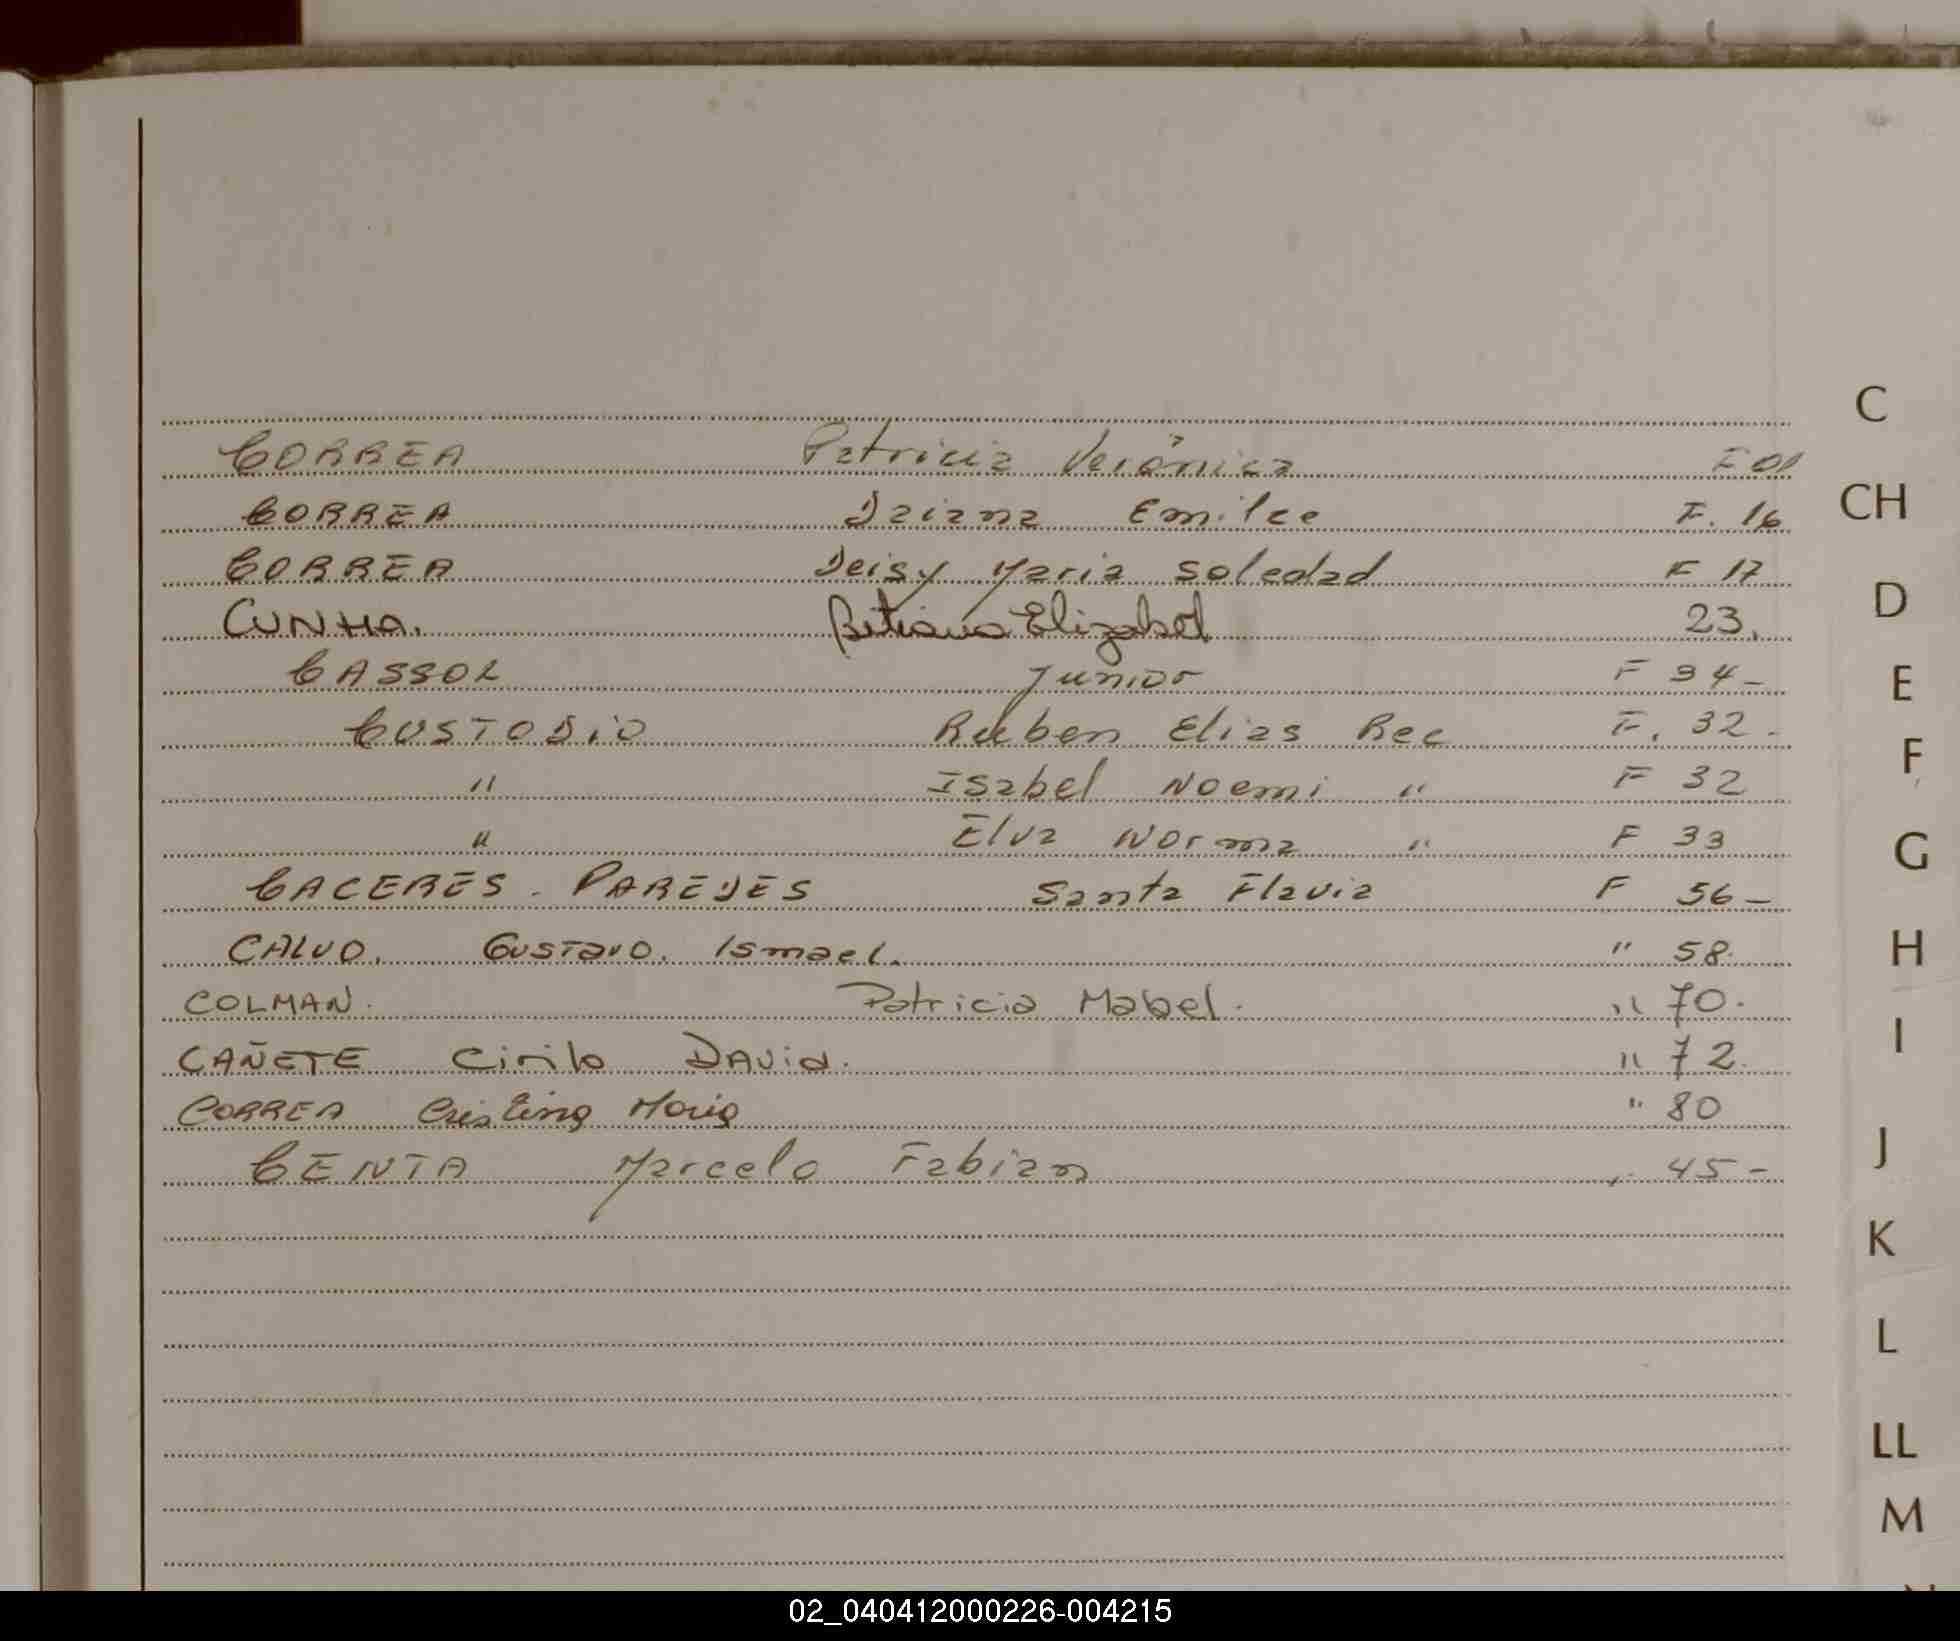 CORREA Patricia Verónica F 01
CORREA Daiana Emilce F. 16
CORREA Deisy Maria Soledad F 17
CUNHA. Betiana Elizabet 23.
CASSOL Junior F 34-
CUSTODIO Ruben Elias Rec F. 32-
" Isabel Noemi " F 32
" Elva Norma " F 33
CACERES - PAREDES Santa Flavia F 56-
CALVO. Gustavo. Ismael. " 58.
COLMAN. Patricia Mabel. " 70.
CAÑETE Cirilo David. " 72.
CORREA Cristina Maria " 80
CENTA Marcelo Fabian " 45-
C
CH
D
E
F
G
H
I
J
K
L
LL
M
02_040412000226-004215